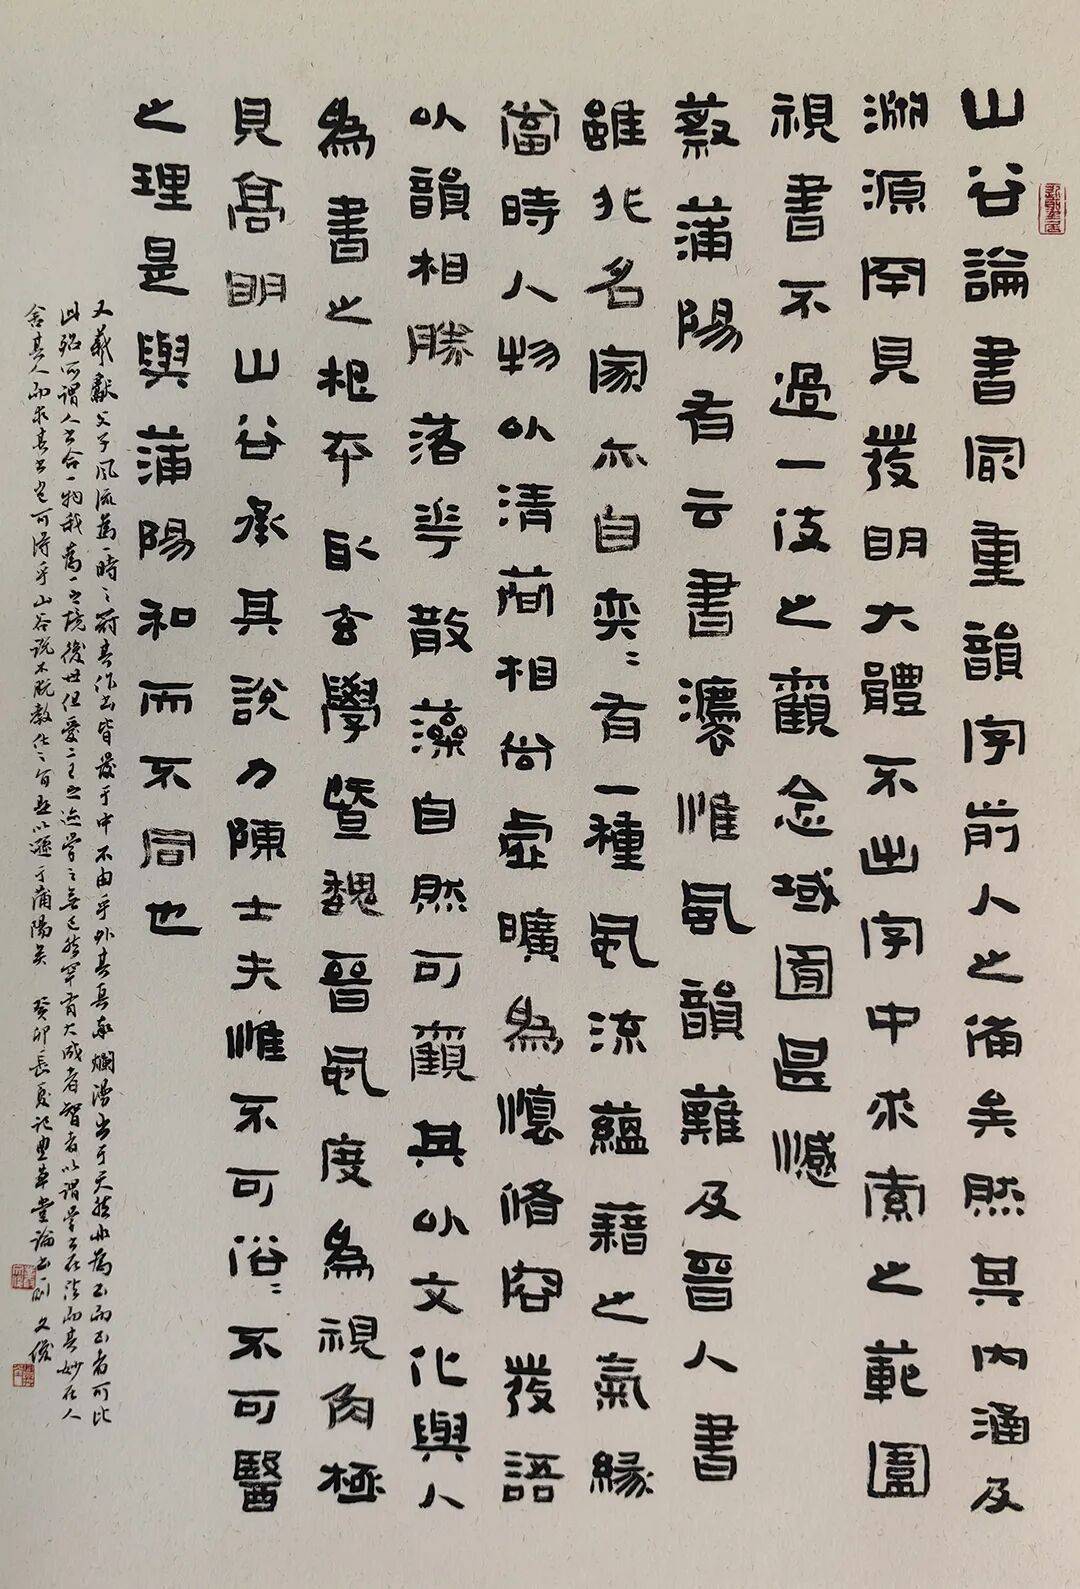 山谷論書最重韻字前人之備矣然其內涵及
溯源罕見發明大體不出字中求索之範圍
視書不過一技之觀念域囿甚憾
蔡蒲陽有云書法惟風韻難及晉人書
雖非名家亦自奕〻有一種風流蘊藉之氣緣
當時人物以清簡相尚虛曠為懷脩容發語
以韻相勝落華散藻自然可觀其以文化與人
為書之根本取玄學暨魏晉風度為視角極
見高明山谷承其說乃陳士夫惟不可俗〻不可醫
之理是與蒲陽和而不同也
又羲獻父子風流為一時之冠其作書皆發于中不由乎外其真率爛漫出于天然少為工而工者可比
此殆所謂人書合一物我為一之境後世但愛二王之迹學之無已然罕有大成者智者以謂學書在法而其妙在人
舍其人而求其書豈可得乎山谷說不脫教化之旨是以遜于蒲陽矣 癸卯長夏記 草堂論書一則 文俊